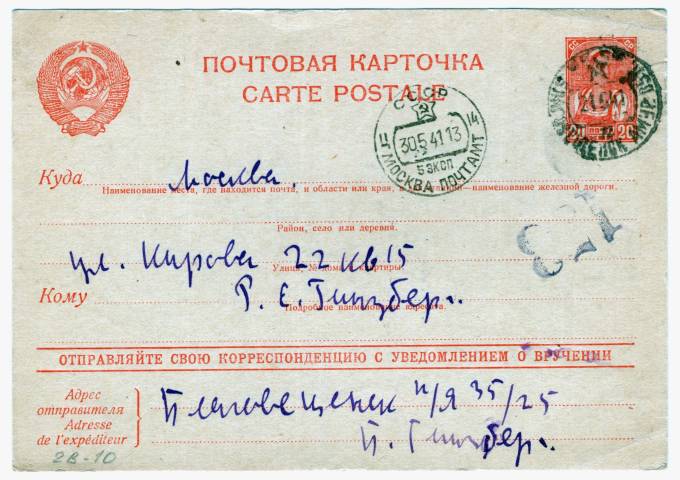 ПОЧТОВАЯ КАРТОЧКА
CARTE POSTALE
СССР
30.5.41 13
5 ЭКСП
МОСКВА ПОЧТАМТ
20 20
Куда Москва.
Наименование места, где находится почта, и области или края, а для станции—наименование железной дороги.
Район, село или деревня.
ул. Кирова 22 кв 15
Улица, № дома и квартиры.
Кому Р. Е. Гинзберг.
Подробное наименование адресата.
ОТПРАВЛЯЙТЕ СВОЮ КОРРЕСПОНДЕНЦИЮ С УВЕДОМЛЕНИЕМ О ВРУЧЕНИИ
Адрес
отправителя
Adresse
de l'expéditeur
Благовещенск п/я 35/25
Гинзберг.
2В-10